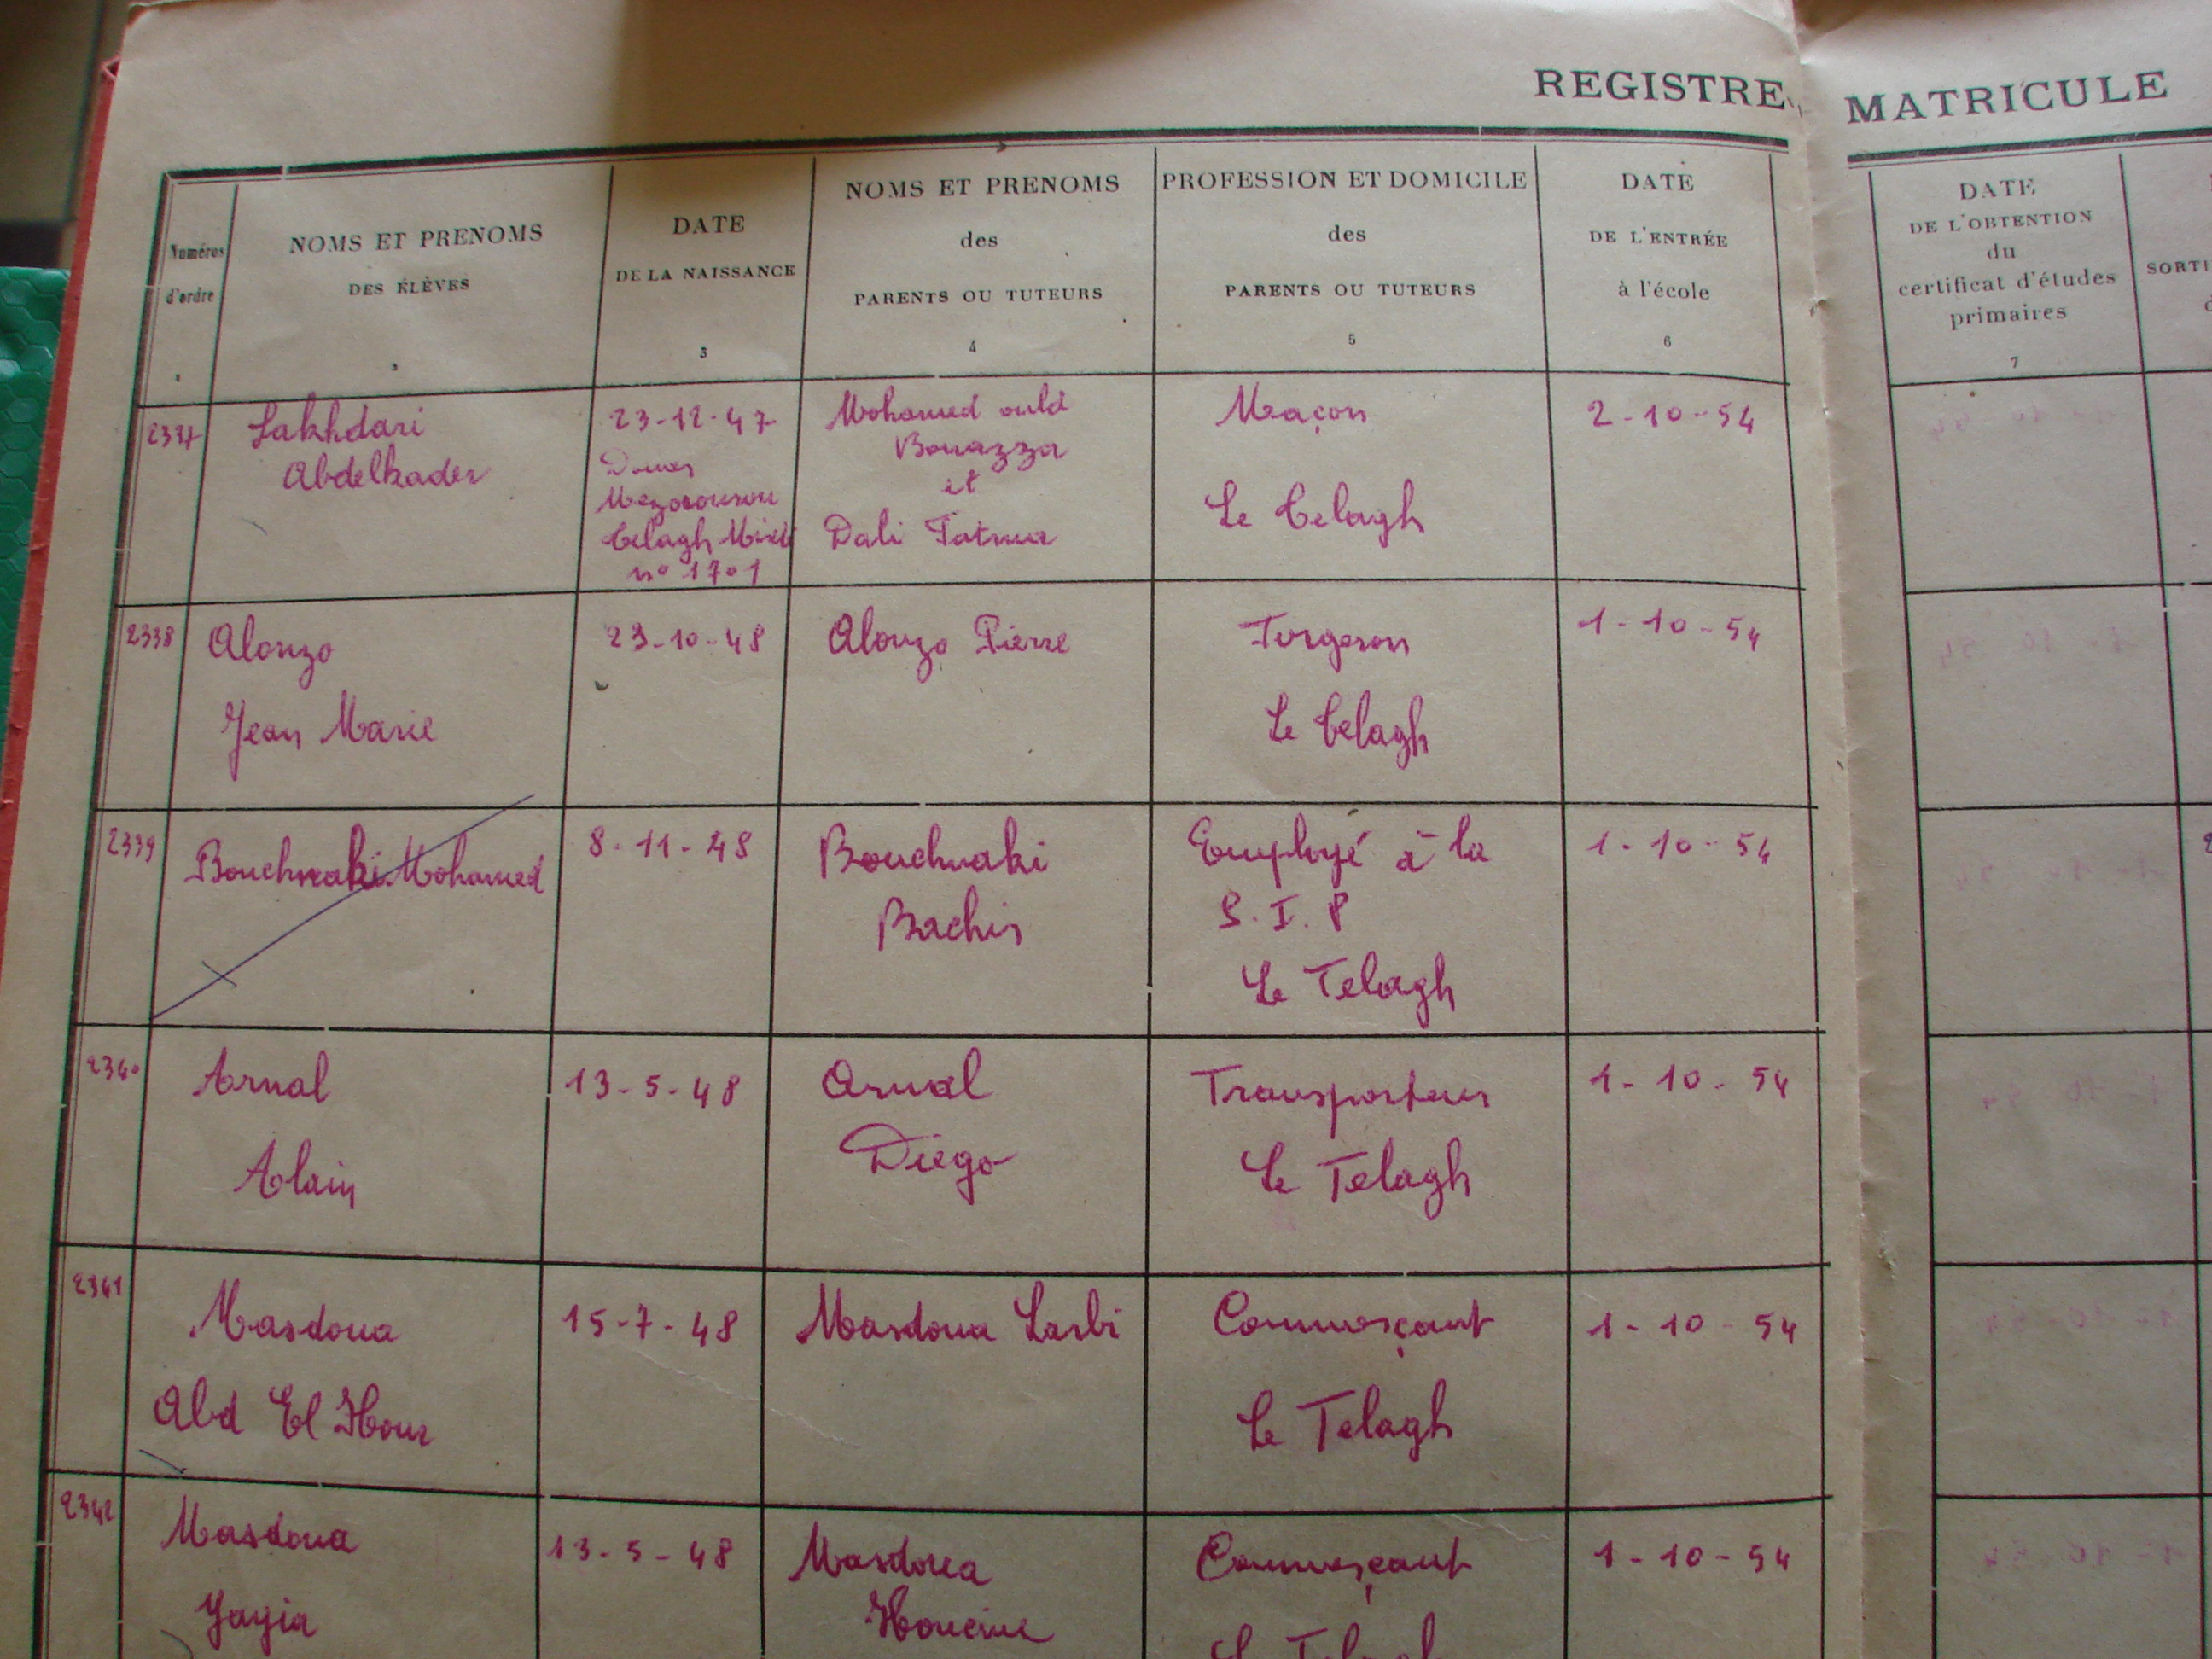 REGISTRE MATRICULE
Numéros
d'ordre
1
NOMS ET PRENOMS
DES ÉLÈVES
2
DATE
DE LA NAISSANCE
3
NOMS ET PRENOMS
des
PARENTS OU TUTEURS
4
PROFESSION ET DOMICILE
des
PARENTS OU TUTEURS
5
DATE
DE L'ENTRÉE
à l'école
6
DATE
DE L'OBTENTION
du
certificat d'études
primaires
7
SORTI
2337
Lakhdari
Abdelkader
23-12-47
Douar
Telagh Mixte
n° 1701
Mohamed ould
Bouazza
et
Dali Fatma
Maçon
Le Telagh
2-10-54
2338
Alonzo
Jean Marie
23-10-48
Alonzo Pierre
Forgeron
Le Telagh
1-10-54
2339
Bouchnaki Mohamed
8-11-48
Bouchnaki
Bachir
Employé à la
S.I.P
Le Telagh
1-10-54
2340
Arnal
Alain
13-5-48
Arnal
Diego
Transporteur
Le Telagh
1-10-54
2341
Masdoua
Abd El Hour
15-7-48
Masdoua Larbi
Commerçant
Le Telagh
1-10-54
2342
Masdoua
Yayia
13-5-48
Masdoua
Houcine
Commerçant
Le Telagh
1-10-54